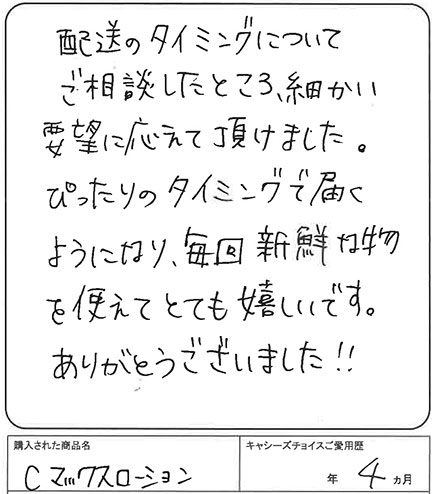 配送のタイミングについて
ご相談したところ、細かい
要望に応えて頂けました。
ぴったりのタイミングで届く
ようになり、毎回新鮮な物
を使えてとても嬉しいです。
ありがとうございました!!
購入された商品名
Cマックスローション
キャシーズチョイスご愛用歴
年 4 ヵ月